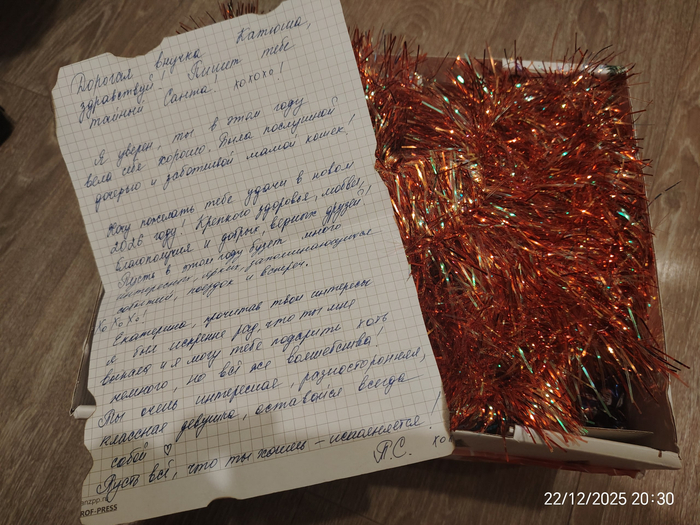 Дорогая внучка Катюша,
здравствуй! Пишет тебе
тайный Санта! хохохо!
Я уверен, ты в этом году
вела себя хорошо. Была послушной
дочерью и заботливой мамой кошек!
Хочу пожелать тебе удачи в новом
2026 году! Крепкого здоровья, любви,
благополучия и добрых, верных друзей!
Пусть в этом году будет много
интересных, ярких, запоминающихся
событий, поездок и встреч.
Хо Хо Хо!
Екатерина, прочитав твои интересы
я был искренне рад, что ты мне
выпала и я могу тебе подарить хоть
немного, но всё же волшебства!
Ты очень интересная, разносторонняя,
классная девушка, оставайся всегда
собой ♡
Пусть всё, что ты хочешь - исполняется!
Т.С. хо
PROF-PRESS
22/12/2025 20:30